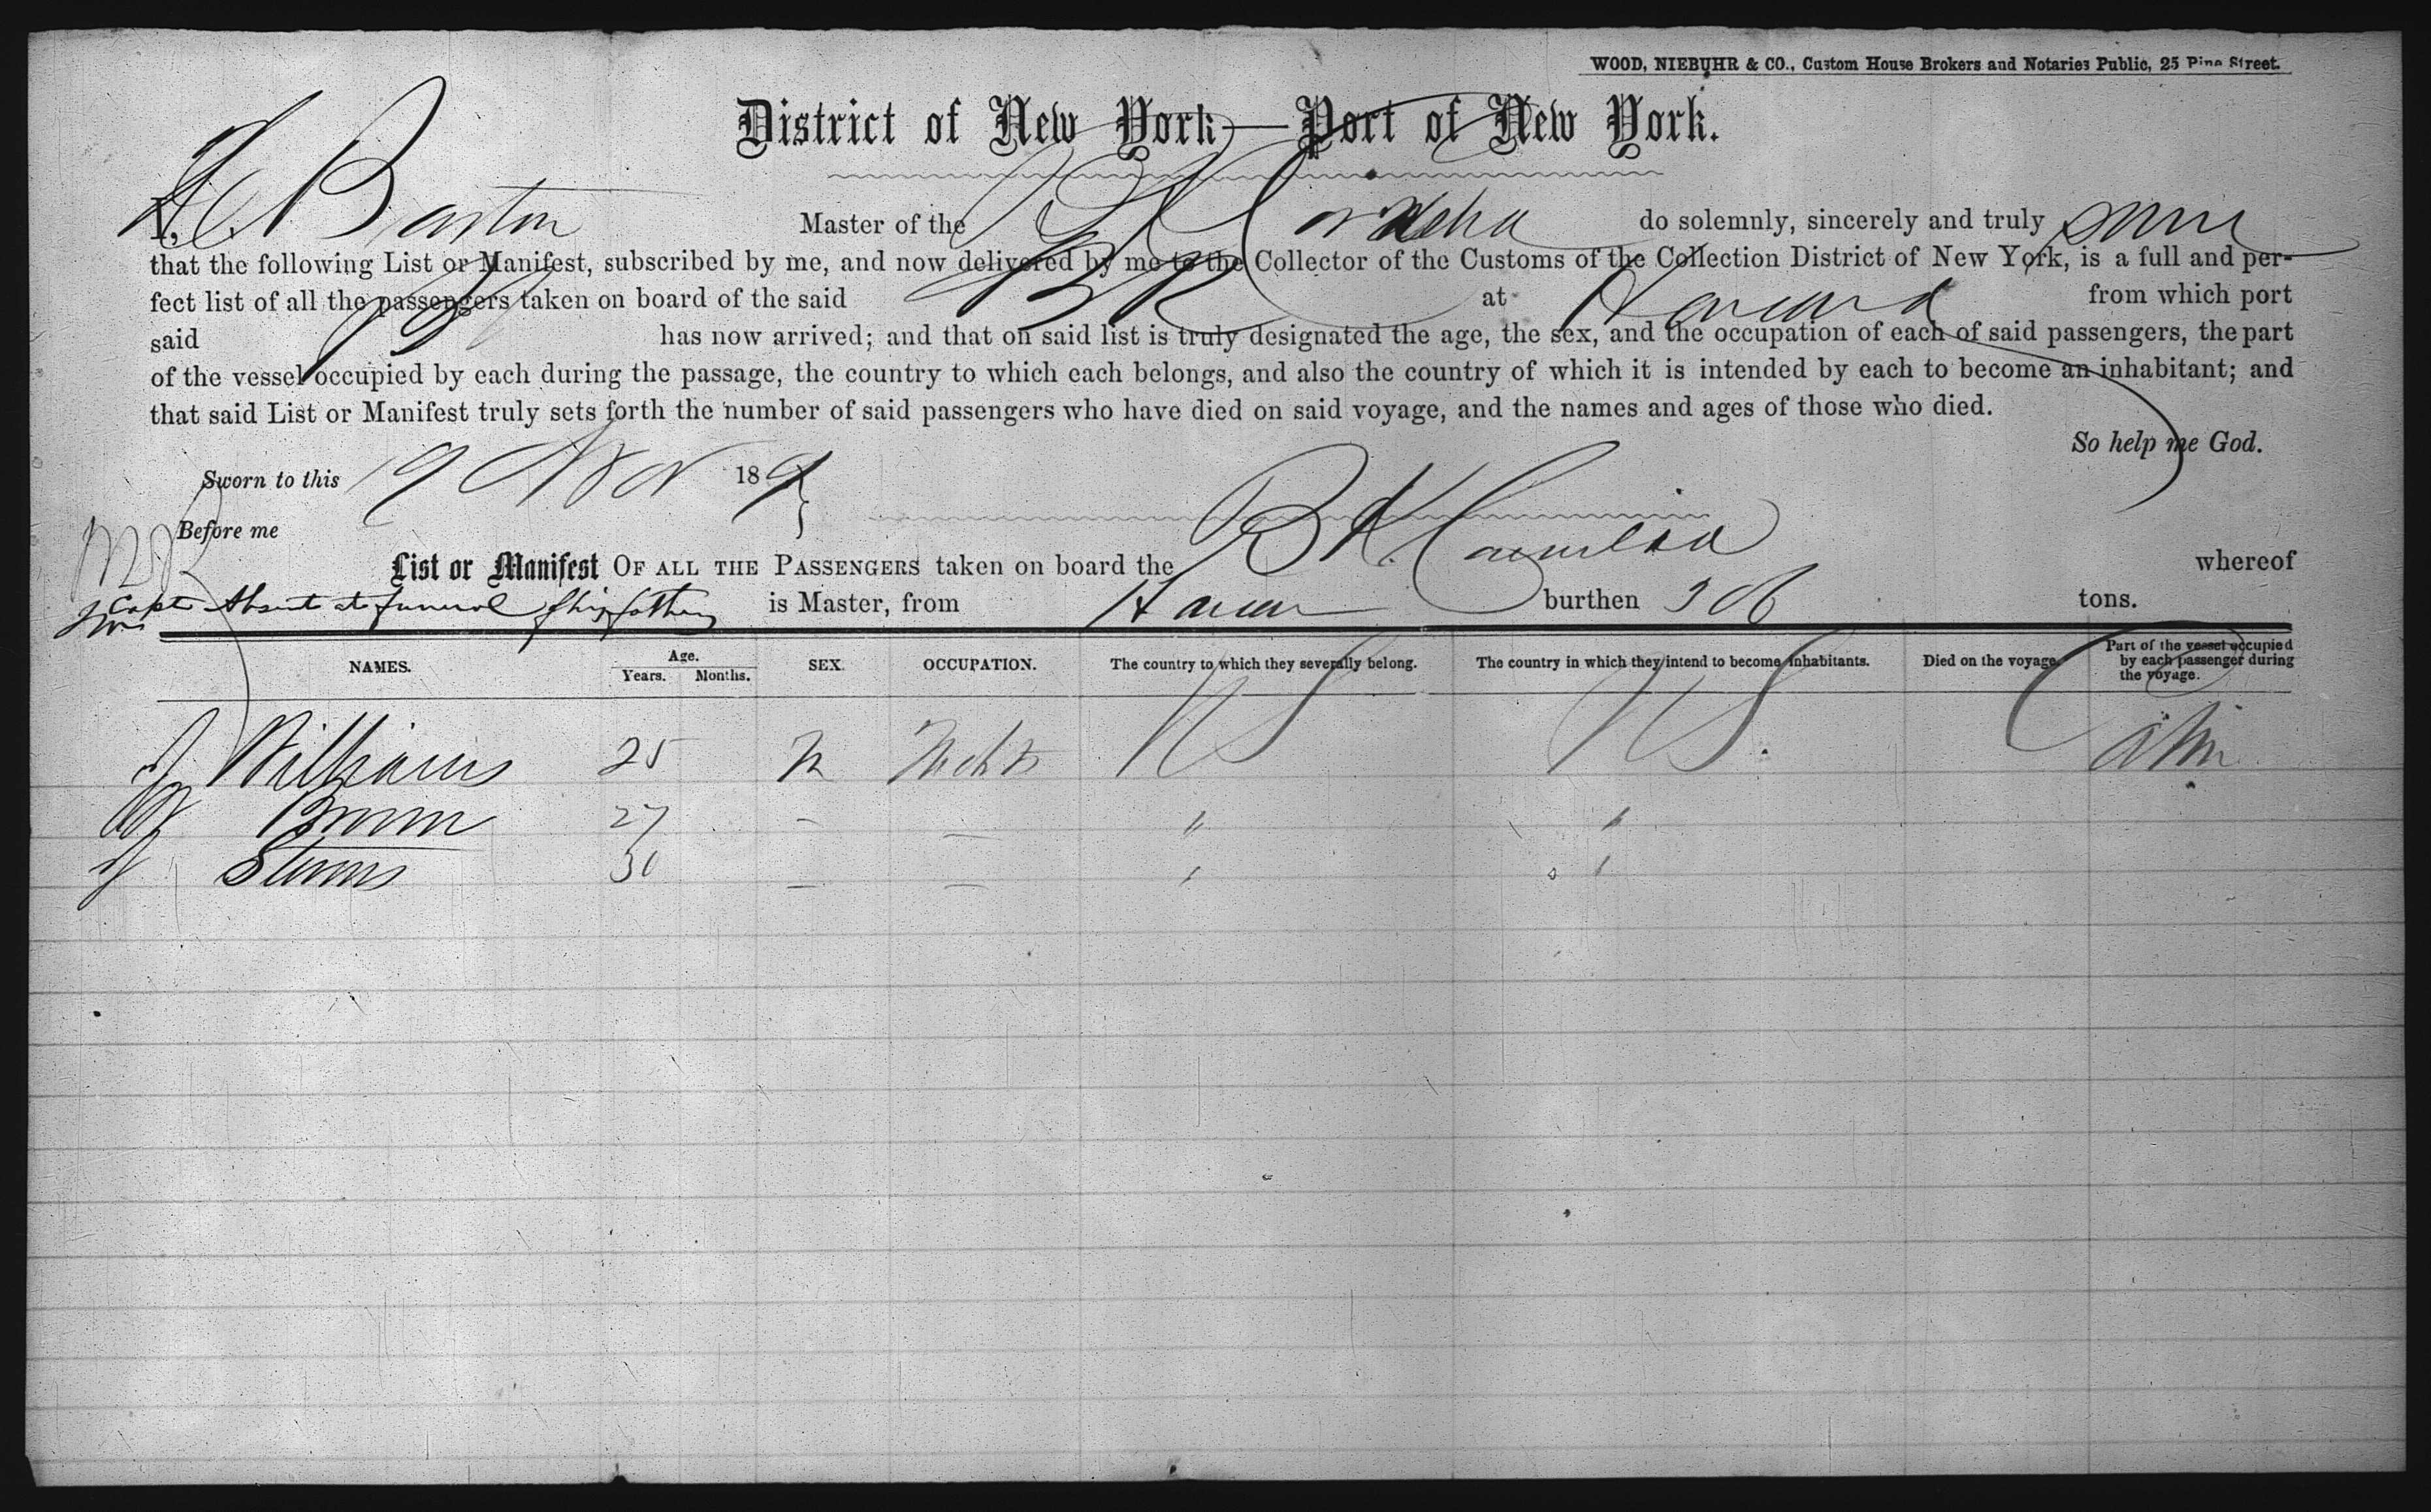 WOOD, NIEBUHR & CO., Custom House Brokers and Notaries Public, 25 Pine Street.
District of New York—Port of New York.
I, Barton Master of the BK do solemnly, sincerely and truly swear
that the following List or Manifest, subscribed by me, and now delivered by me to the Collector of the Customs of the Collection District of New York, is a full and per-
fect list of all the passengers taken on board of the said BK at Havana from which port
said BK has now arrived; and that on said list is truly designated the age, the sex, and the occupation of each of said passengers, the part
of the vessel occupied by each during the passage, the country to which each belongs, and also the country of which it is intended by each to become an inhabitant; and
that said List or Manifest truly sets forth the number of said passengers who have died on said voyage, and the names and ages of those who died.
So help me God.
Sworn to this 19 Nov 189
Before me
List or Manifest OF ALL THE PASSENGERS taken on board the BK whereof
Capt Absent at funeral of his father is Master, from Havana burthen tons.
NAMES. Age. Years. Months. SEX. OCCUPATION. The country to which they severally belong. The country in which they intend to become inhabitants. Died on the voyage. Part of the vessel occupied by each passenger during the voyage.
J Williams 25 M US US Cabin
W Brown 27 — — " "
J 30 — — " "